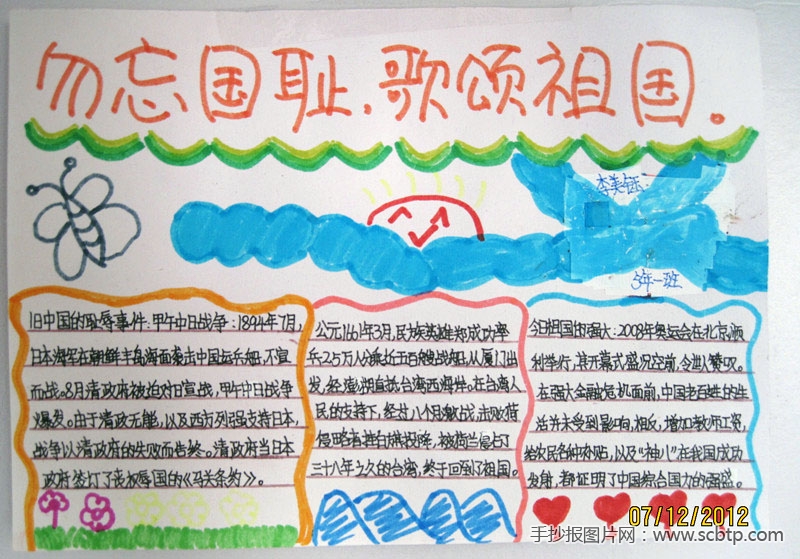 勿忘国耻.歌颂祖国。
李美钰
5年一班
旧中国的耻辱事件:甲午中日战争:1894年7月,
日本海军在朝鲜丰岛海面袭击中国运兵船,不宣
而战。8月清政府被迫对日宣战,甲午中日战争
爆发。由于清政无能,以及西方列强支持日本,
战争以清政府的失败而告终。清政府当日本
政府签订了丧权辱国的《马关条约》。
公元1661年3月,民族英雄郑成功率
兵2.5万人分乘几百艘战船,从厦门出
发,经澎湖直抵台湾西海岸。在台湾人
民的支持下,经过八个月激战,击败荷
侵略者并白棋投降,被荷兰侵占了
三十八年之久的台湾,终于回到了祖国。
今日祖国的强大:2008年奥运会在北京顺
利举行,其开幕式盛况空前,令世人赞叹。
在强大金融危机面前,中国老百姓的生
活并未受到影响,相反,增加教师工资,
给农民各种补贴,以及“神八”在我国成功
发射,都证明了中国综合国力的强盛。
07/12/2012
手抄报图片网:www.scbtp.com